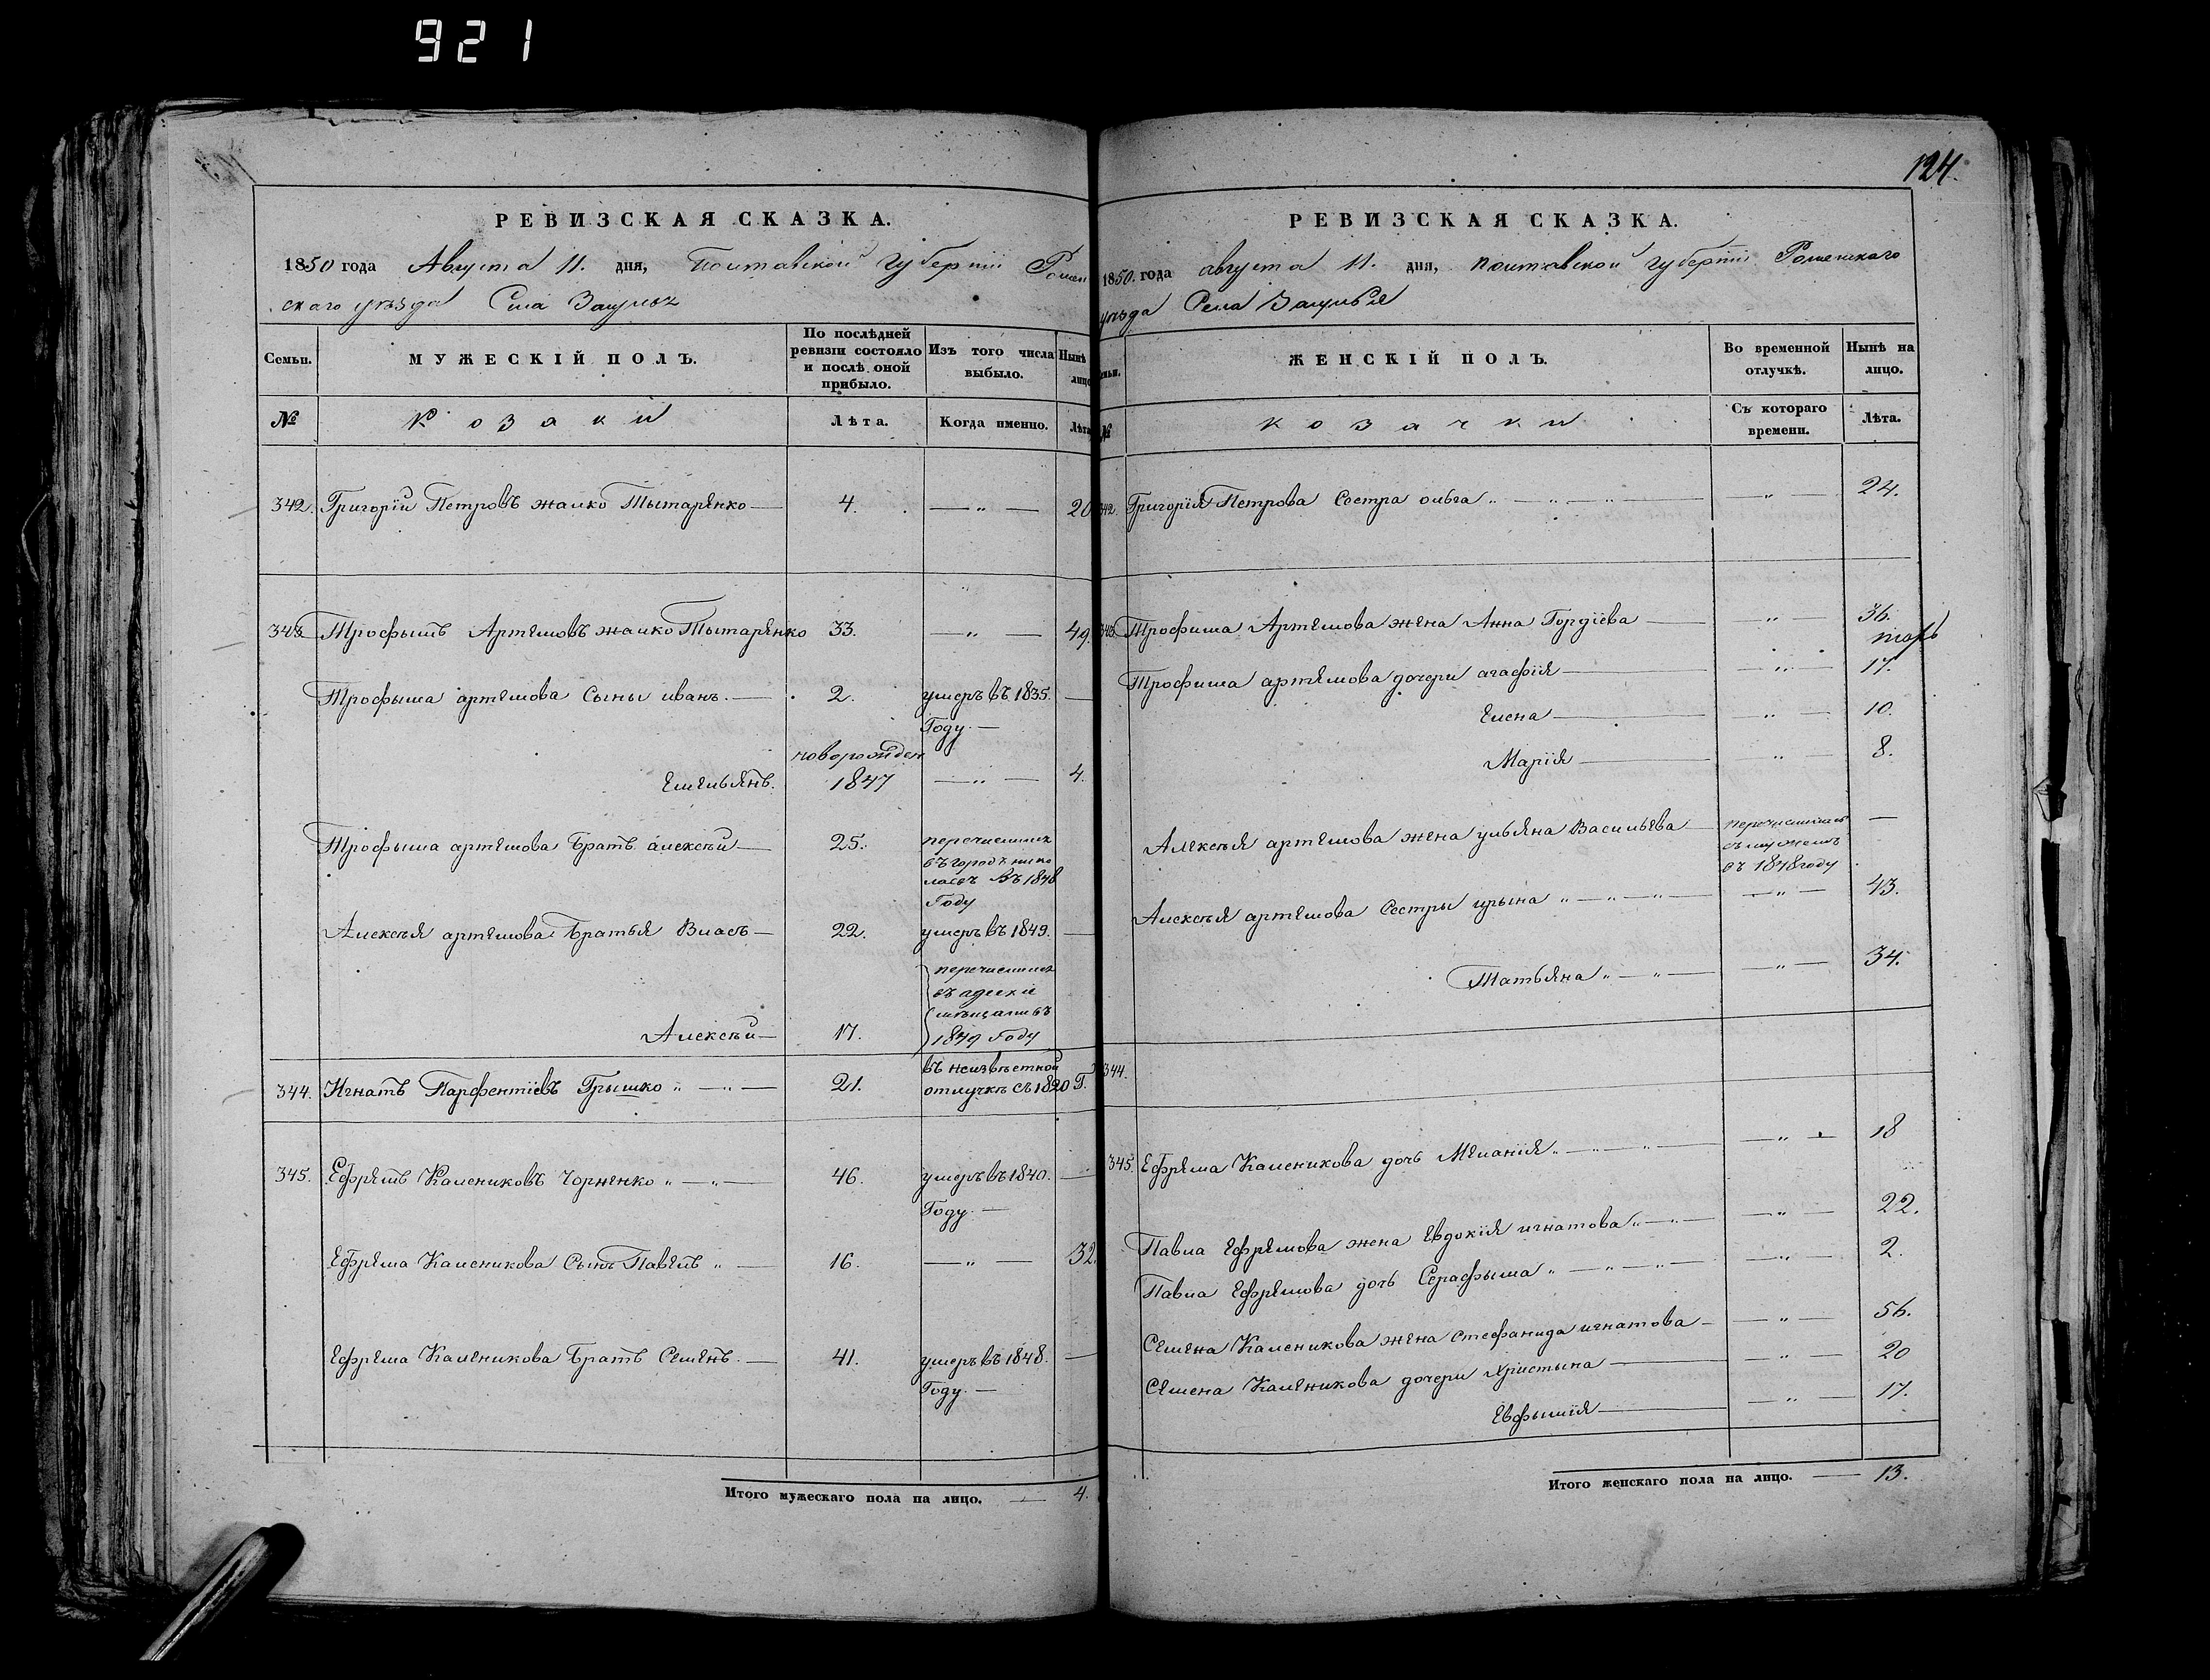 921
РЕВИЗСКАЯ СКАЗКА.
1850 года Августа 11. дня, Полтавской губернии Ромен
ского уѣзда Села
Семьи. МУЖЕСКІЙ ПОЛЪ. По послѣдней ревизіи состояло и послѣ оной прибыло. Изъ того числа выбыло. Нынѣ лицо
№ Козаки Лѣта. Когда именно. Лѣта
342. Григорій Петровъ жалко Тытаренко 4. 20
343 Трофымъ Артемовъ жалко Тытаренко 33. 49.
Трофыма артемова Сыны иванъ. 2. умеръ въ 1835.
Году.
новорожден
Емельянъ. 1847 4.
Трофыма артемова Братъ алексѣй 25. перечислился
въ городъ нико
лаевъ Въ 1848
Году
Алексѣя артемова Братья Власъ 22. умеръ въ 1849.
перечислился
въ адеския
мѣщаны въ
Алексѣй 17. 1849 Году
344. Игнатъ Парфентіевъ Грышко 21. въ неизвѣстной
отлучкѣ съ 1820 Г.
345. Ефремъ Калениковъ Чорненко 46. умеръ въ 1840.
Году.
Ефрема Каленикова Сынъ Павелъ 16. 32.
Ефрема Каленикова Братъ Семенъ. 41. умеръ въ 1848.
Году.
Итого мужескаго пола на лицо. 4.
124.
РЕВИЗСКАЯ СКАЗКА.
1850. года августа 11. дня, полтавской губерніи Роменского
уѣзда Села Засулья
Семьи. ЖЕНСКІЙ ПОЛЪ. Во временной отлучкѣ. Нынѣ на лицо.
№ козачки Съ котораго времени. Лѣта.
342. Григорія Петрова Сестра ольга 24.
343 Трофима Артемова жена Анна Гордіева 36.
Трофима артемова дочери агафія 17.
Елена 10.
Марія 8.
Алексѣя артемова жена ульяна Васильева перечислилась
съ мужемъ
въ 1848 году
Алексѣя артемова Сестры ирына 43.
Татьяна 34.
344.
345. Ефрема Каленикова дочь Меланія 18
Павла Ефремова жена Евдокія игнатова 22.
Павла Ефремова дочь Серафыма 2.
Семена Каленикова жена стефанида игнатова 56.
Семена Каленикова дочери Христына 20
Евфымія 17.
Итого женскаго пола на лицо. 13.